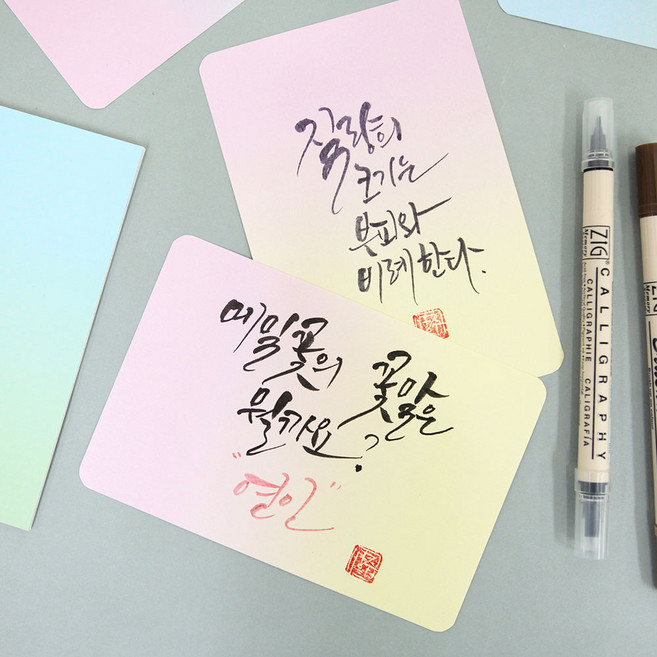 질량의
크기는
부피와
비례한다.
메밀꽃의 꽃말은
뭘까요?
"연인"
ZIG®
CALLIGRAPHY
CALLIGRAPHIE CALLIGRAFÍA
ZIG